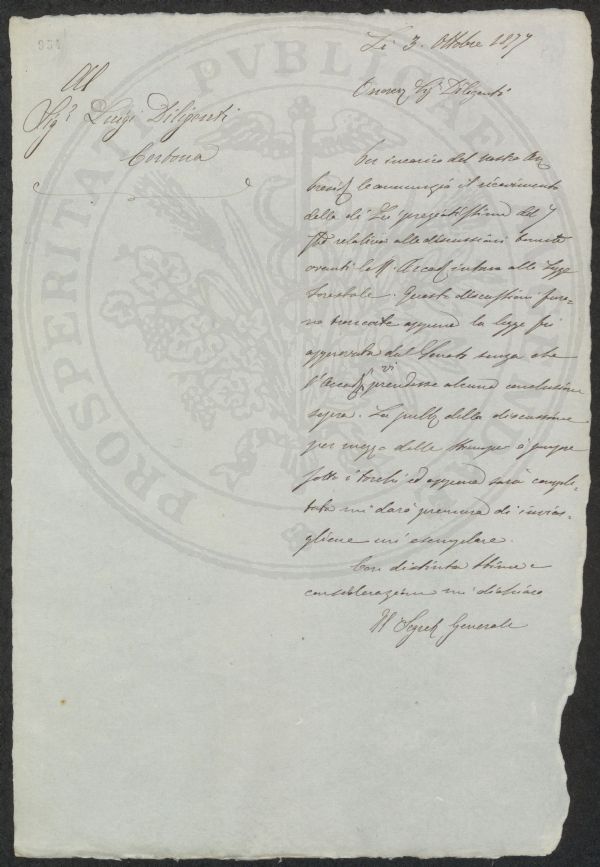 934
Al
Sigr Luigi Diligenti
Cortona
Li 3. Ottobre 1877
Onorev Sig. Diligenti
Per incarico del nostro
le annunzio il ricevimento
della di Lei pregiatissima del 7
relativa alle discussioni tenute
avanti la R. Accad intorno alla Legge
forestale. Queste discussioni furo-
no troncate appena la legge fu
approvata dal Senato senza che
l'Accad vi prendesse alcuna conclusione
sopra. La pubb della discussione
per mezzo delle stampe è sempre
sotto i torchi ed appena sarà comple-
tata mi darò premura di inviar-
gliene un esemplare.
Con distinta stima e
considerazione mi dichiaro
Il Segret Generale
PROSPERITATI PVBLICAE